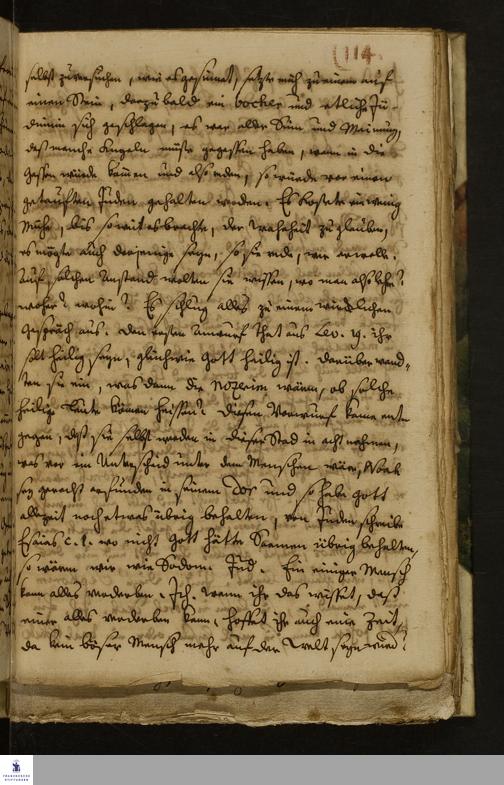 (114.
selbst zuversuchen, wie es gesinnet, setzte mich zu einem auf
einen Stein, darzu bald ein bocher und etliche Jü-
dinnen sich geschlagen, es war aller Sinn und Meinung,
daß manche Kugeln müste gegessen haben, wann in die
Gassen würde kommen und also reden, so würde vor einen
getaufften Juden gehalten werden. Es kostete ein wenig
Mühe, bis soweit es brachte, der Wahrheit zu glauben,
es mögte auch derjenige sagen, so sie rede, wer er wolle.
Auf solchen Anstand wolten sie wissen, wo man
woher? wohin? Es schlug alles zu einem
Gespräch aus. Den ersten Anwurf that aus Lev. 19. ihr
solt heilig seyn, gleichwie Gott heilig ist. Darüber wand-
ten sie ein, was dann die Nozerim wären, ob solche
heilige Leute können heissen? Diesem Vorwurf kame ent-
gegen, daß sie selbst werden in dieser Stad in acht nehmen,
was vor ein Unterschied unter den Menschen wäre, Noah
sey gerecht erfunden in seinem Dor und so habe Gott
allezeit noch etwas übrig behalten, von Juden schreibe
Esaias c. 1. wo nicht Gott hätte Saamen übrig behalten,
so wären wir wie Sodom. Jud. Ein einiger Mensch
kann alles verderben. Ich. wenn ihr das wisset, daß
einer alles verderben kann, hoffet ihr auch eine Zeit,
da kein böser Mensch mehr auf der Welt seyn wird?
FRANCKESCHE
STIFTUNGEN